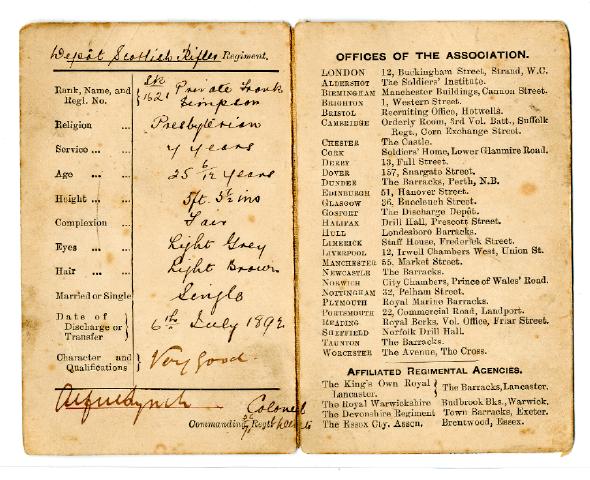 Depôt Scottish Rifles Regiment.
Rank, Name, and Regl. No. } SR 1621 Private Frank Simpson
Religion ... Presbyterian
Service ... ... 7 years
Age ... ... 25 6/12 years
Height ... ... 5ft. 5½ ins
Complexion ... Fair
Eyes ... ... Light Grey
Hair ... ... Light Brown
Married or Single Single
Date of Discharge or Transfer } 6th July 1892
Character and Qualifications } Very good.
Colonel
Commanding Regtl
OFFICES OF THE ASSOCIATION.
LONDON 12, Buckingham Street, Strand, W.C.
ALDERSHOT The Soldiers' Institute.
BIRMINGHAM Manchester Buildings, Cannon Street.
BRIGHTON 1, Western Street.
BRISTOL Recruiting Office, Hotwells.
CAMBRIDGE Orderly Room, 3rd Vol. Batt., Suffolk
Regt., Corn Exchange Street.
CHESTER The Castle.
CORK Soldiers' Home, Lower Glanmire Road.
DERBY 13, Full Street.
DOVER 157, Snargate Street.
DUNDEE The Barracks, Perth, N.B.
EDINBURGH 51, Hanover Street.
GLASGOW 36, Buccleuch Street.
GOSPORT The Discharge Depôt.
HALIFAX Drill Hall, Prescott Street.
HULL Londesboro Barracks.
LIMERICK Staff House, Frederick Street.
LIVERPOOL 12, Irwell Chambers West, Union St.
MANCHESTER 55, Market Street.
NEWCASTLE The Barracks.
NORWICH City Chambers, Prince of Wales' Road.
NOTTINGHAM 32, Pelham Street.
PLYMOUTH Royal Marine Barracks.
PORTSMOUTH 22, Commercial Road, Landport.
READING Royal Berks, Vol. Office, Friar Street.
SHEFFIELD Norfolk Drill Hall.
TAUNTON The Barracks.
WORCESTER The Avenue, The Cross.
AFFILIATED REGIMENTAL AGENCIES.
The King's Own Royal Lancaster. { The Barracks, Lancaster.
The Royal Warwickshire Budbrook Bks., Warwick.
The Devonshire Regiment Town Barracks, Exeter.
The Essex Cty. Assen. Brentwood, Essex.